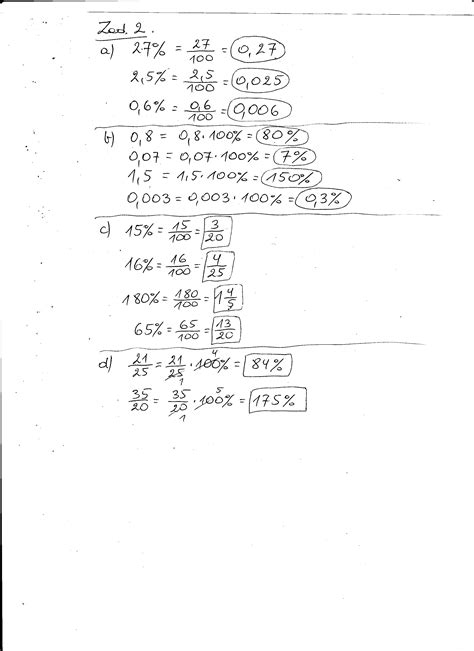 Zad. 2.
a) 27% = 27/100 = 0,27
2,5% = 2,5/100 = 0,025
0,6% = 0,6/100 = 0,006
b) 0,8 = 0,8·100% = 80%
0,07 = 0,07·100% = 7%
1,5 = 1,5·100% = 150%
0,003 = 0,003·100% = 0,3%
c) 15% = 15/100 = 3/20
16% = 16/100 = 4/25
180% = 180/100 = 1 4/5
65% = 65/100 = 13/20
d) 21/25 = 21/25 1 · 100 4 % = 84%
35/20 = 35/20 1 · 100 5 % = 175%